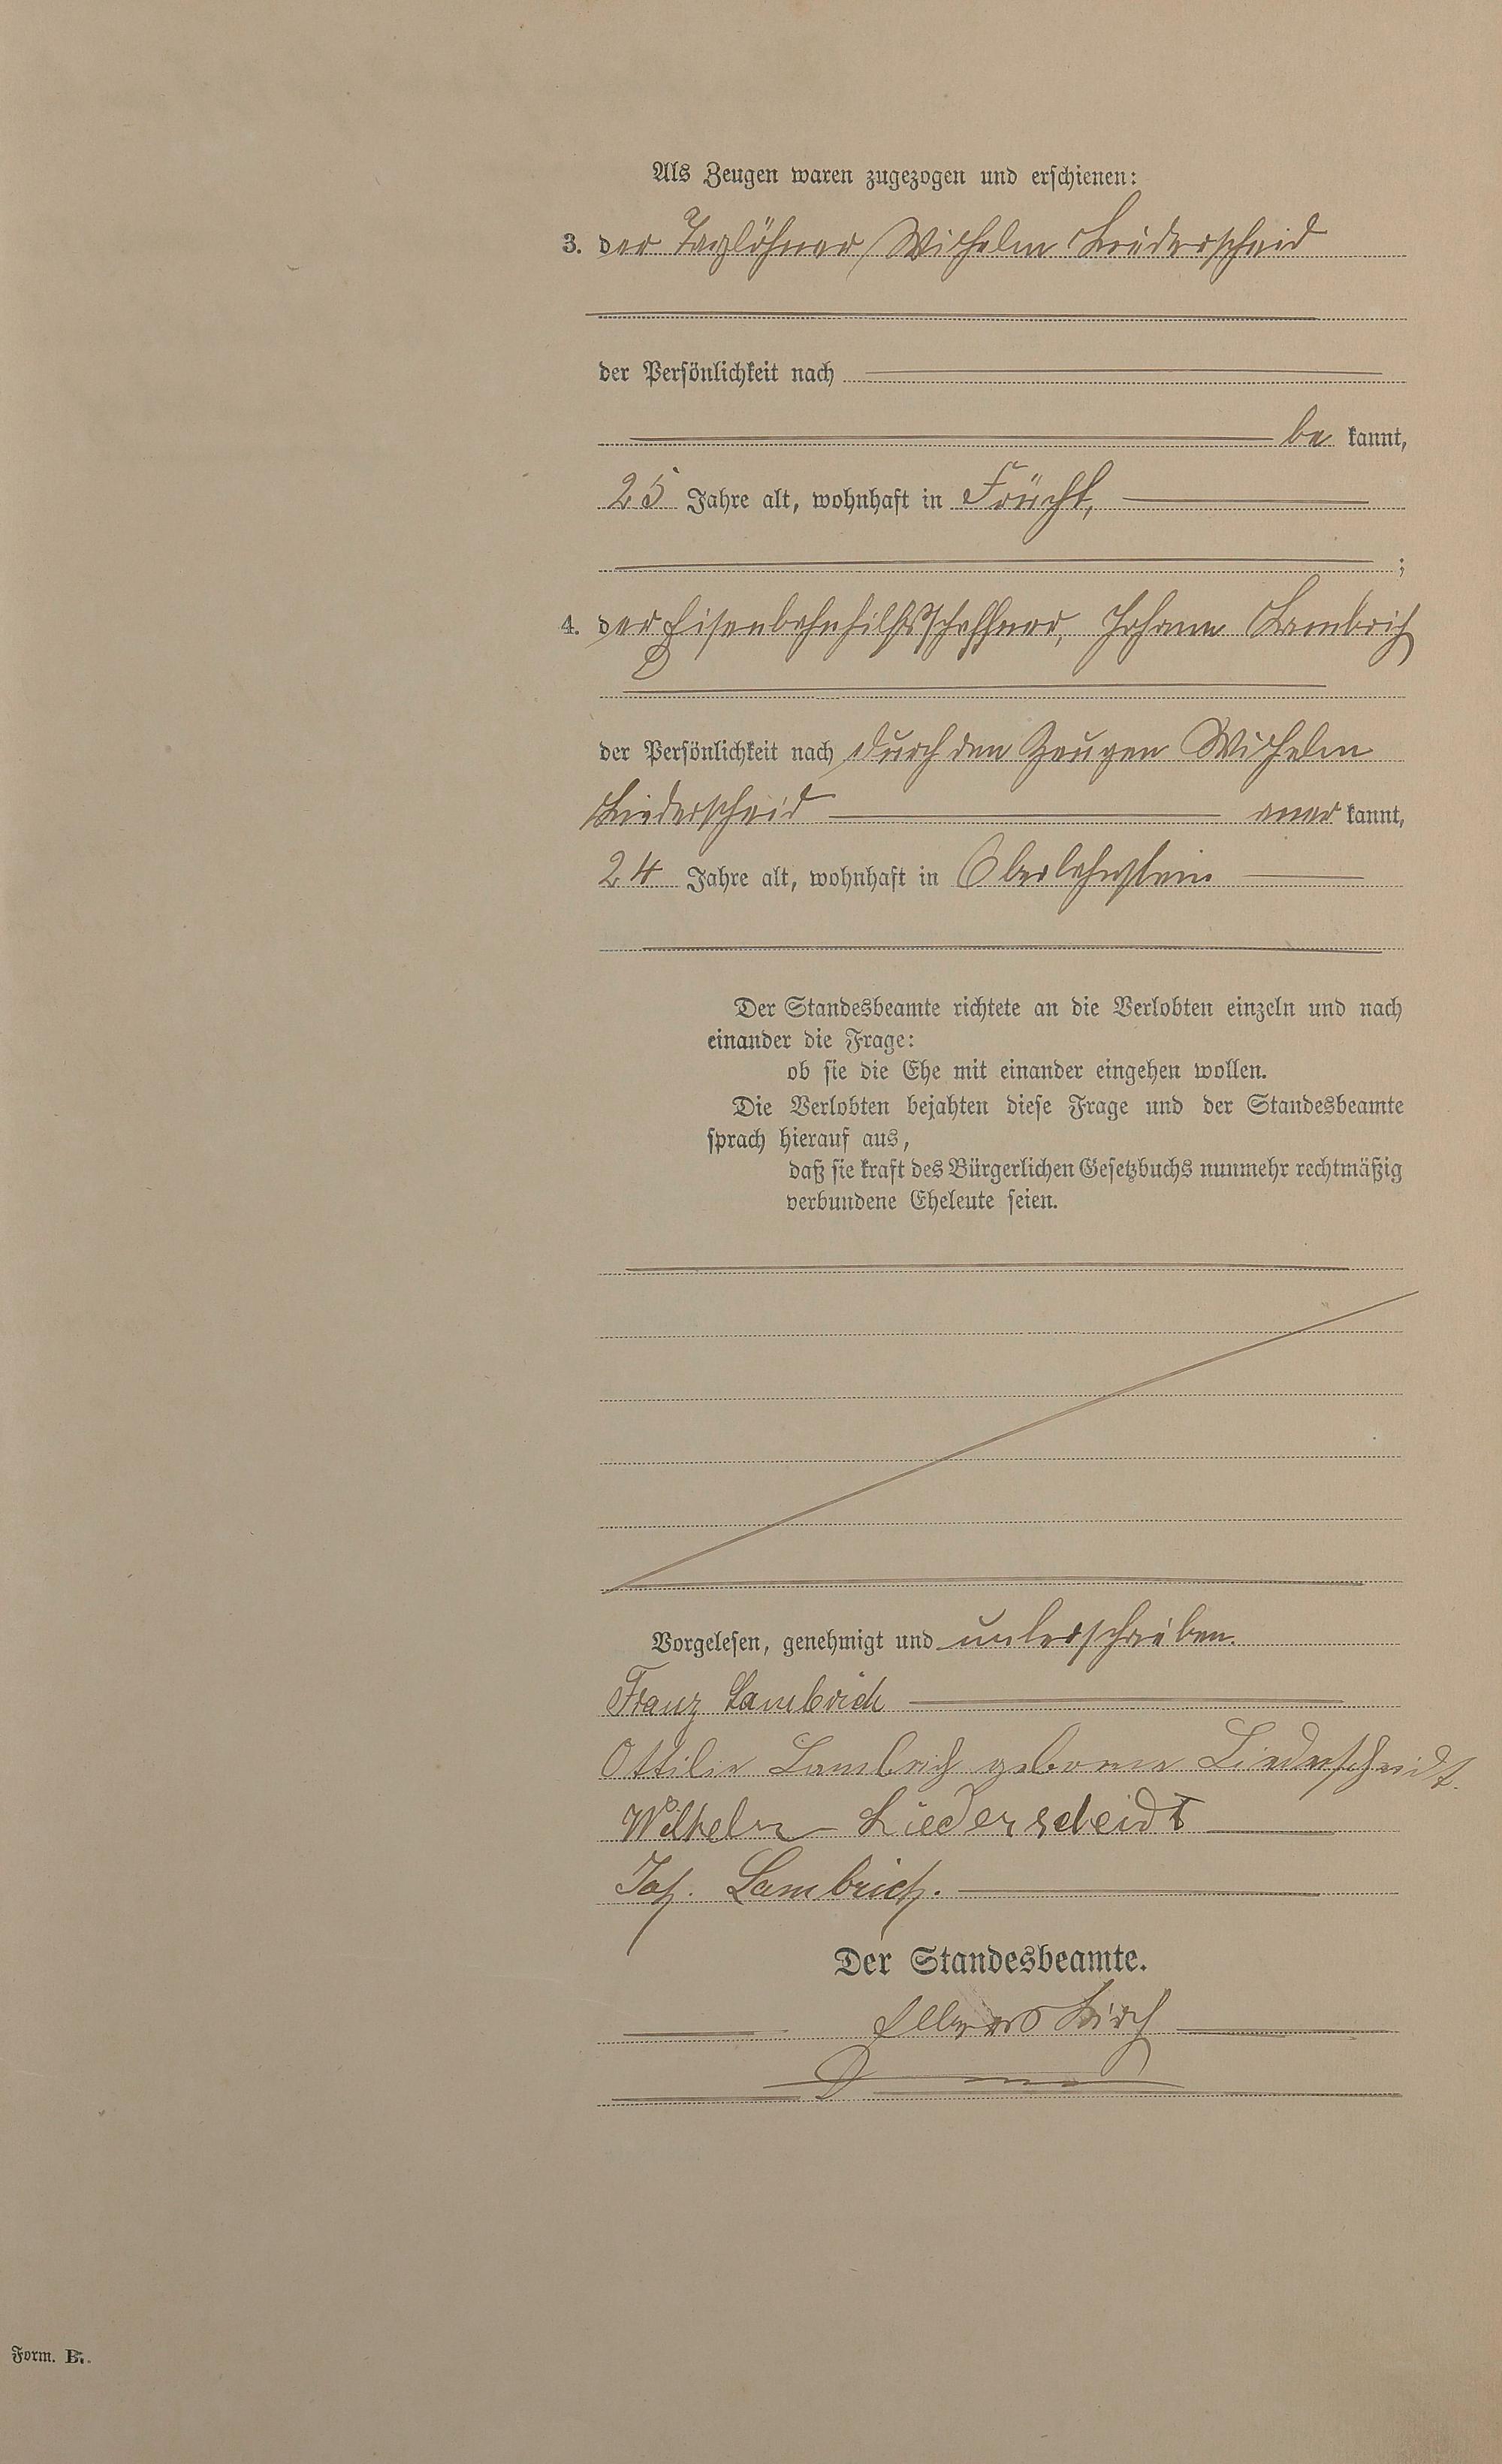 Als Zeugen waren zugezogen und erschienen:
3. der Taglöhner, Wilhelm Liederscheid
der Persönlichkeit nach
be kannt,
25 Jahre alt, wohnhaft in Frücht,
;
4. der Eisenbahnhilfsschaffner, Johann Lambrich
der Persönlichkeit nach durch den Zeugen Wilhelm
Liederscheid aner kannt,
24 Jahre alt, wohnhaft in Oberlahnstein
Der Standesbeamte richtete an die Verlobten einzeln und nach
einander die Frage:
ob sie die Ehe mit einander eingehen wollen.
Die Verlobten bejahten diese Frage und der Standesbeamte
sprach hierauf aus,
daß sie kraft des Bürgerlichen Gesetzbuchs nunmehr rechtmäßig
verbundene Eheleute seien.
Vorgelesen, genehmigt und unterschrieben.
Franz Lambrich
Ottilie Lambrich geborene Liederscheidt.
Wilhelm Liederscheidt
Joh. Lambrich.
Der Standesbeamte.
Form. B.